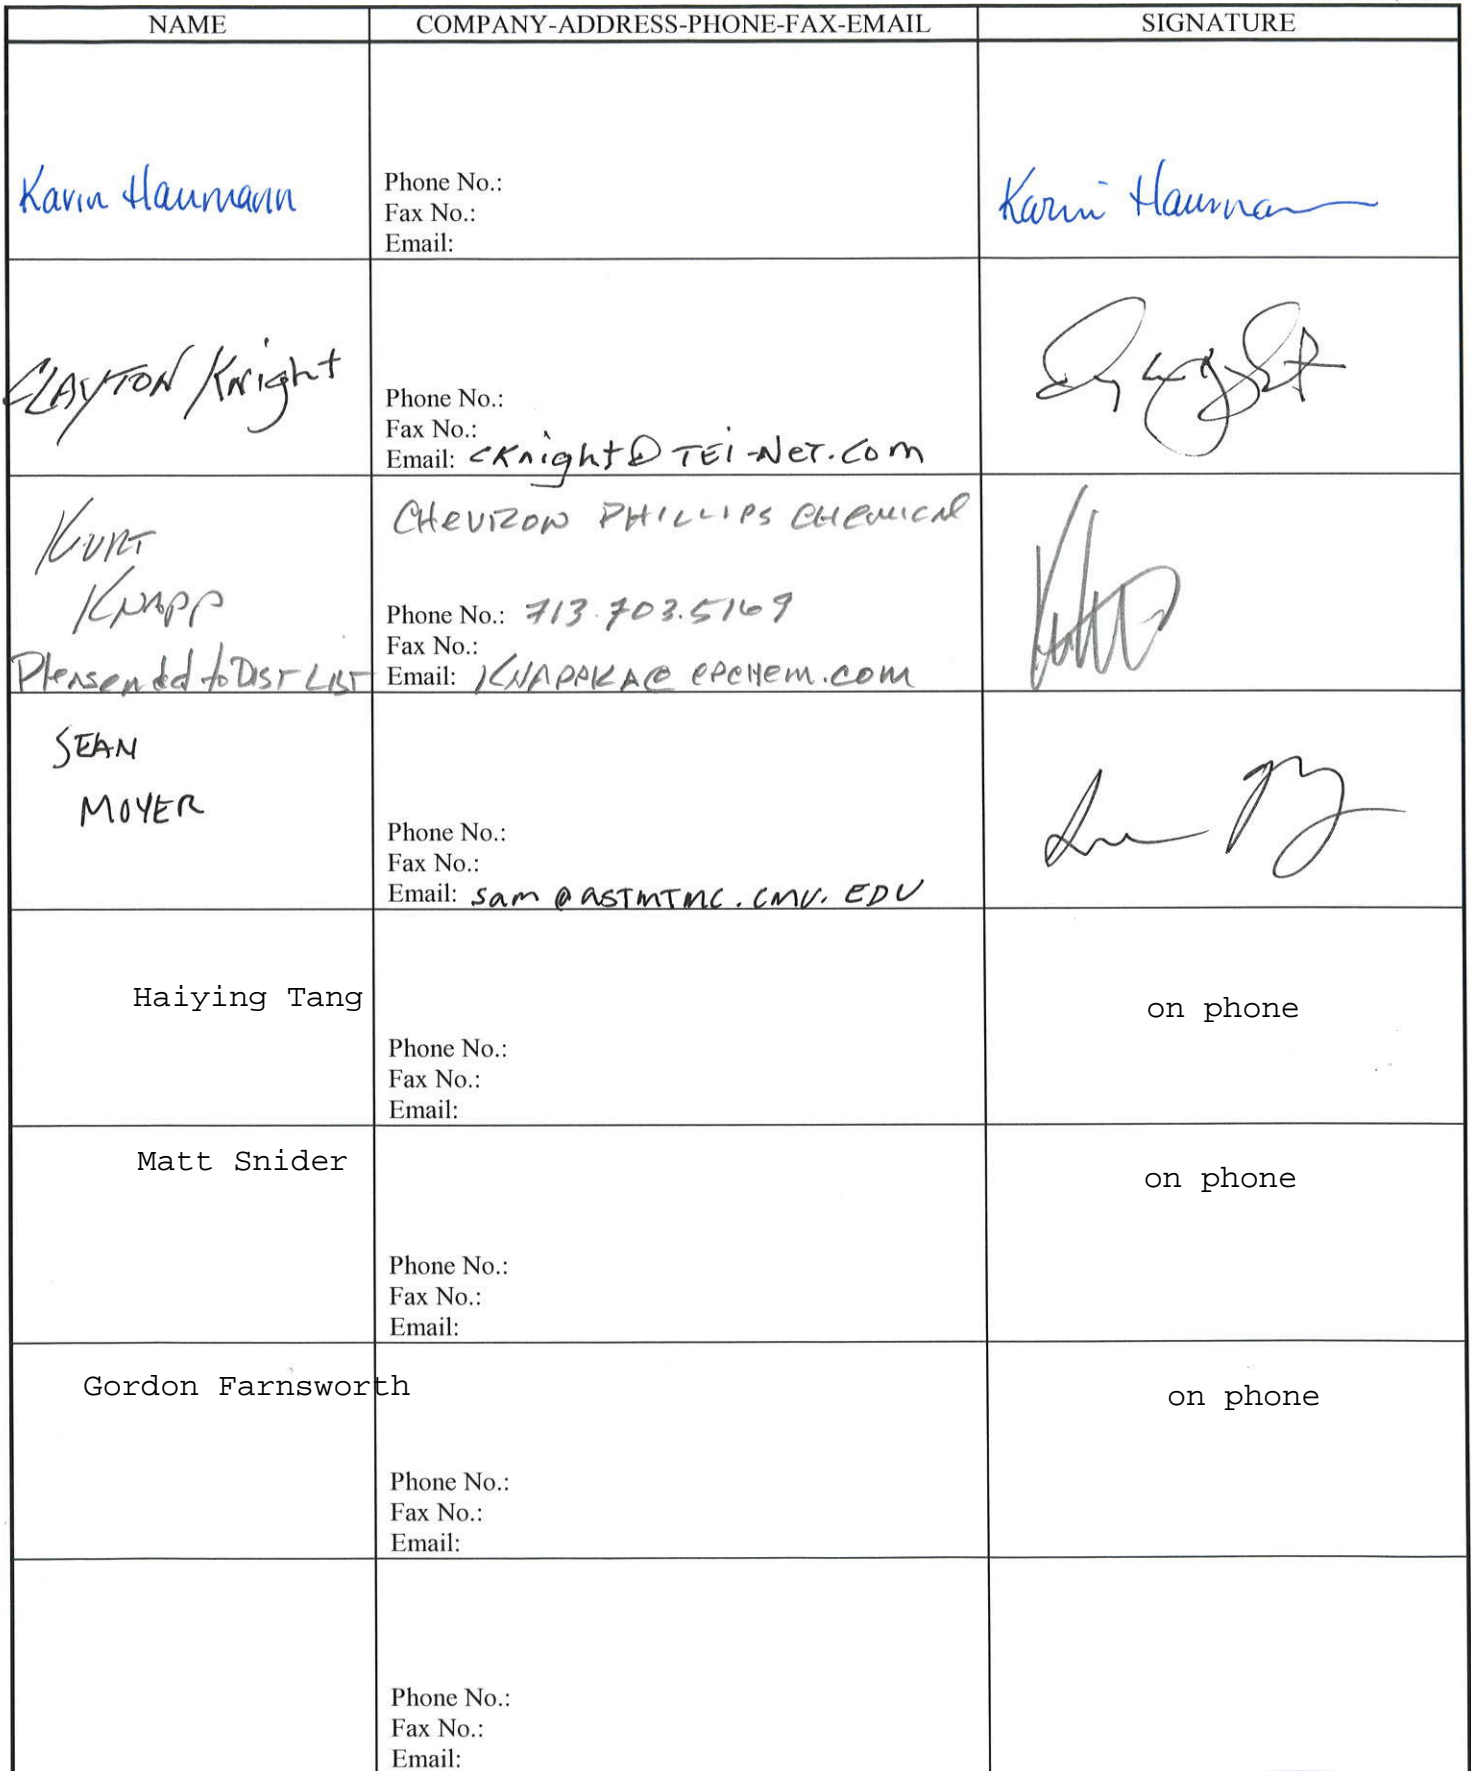 NAME
COMPANY-ADDRESS-PHONE-FAX-EMAIL
SIGNATURE
Karin Haumann
Phone No.:
Fax No.:
Email:
Karin Haumann
CLAYTON Knight
Phone No.:
Fax No.:
Email: cKnight@TEi-NeT.Com
KURT
KNAPP
Please add to DIST LIST
CHEVRON PHILLIPS CHEMICAL
Phone No.: 713.703.5169
Fax No.:
Email: KNAPPKA@CPCHEM.COM
SEAN
MOYER
Phone No.:
Fax No.:
Email: sam@ASTMTMC.CMU.EDU
Haiying Tang
Phone No.:
Fax No.:
Email:
on phone
Matt Snider
Phone No.:
Fax No.:
Email:
on phone
Gordon Farnsworth
Phone No.:
Fax No.:
Email:
on phone
Phone No.:
Fax No.:
Email: